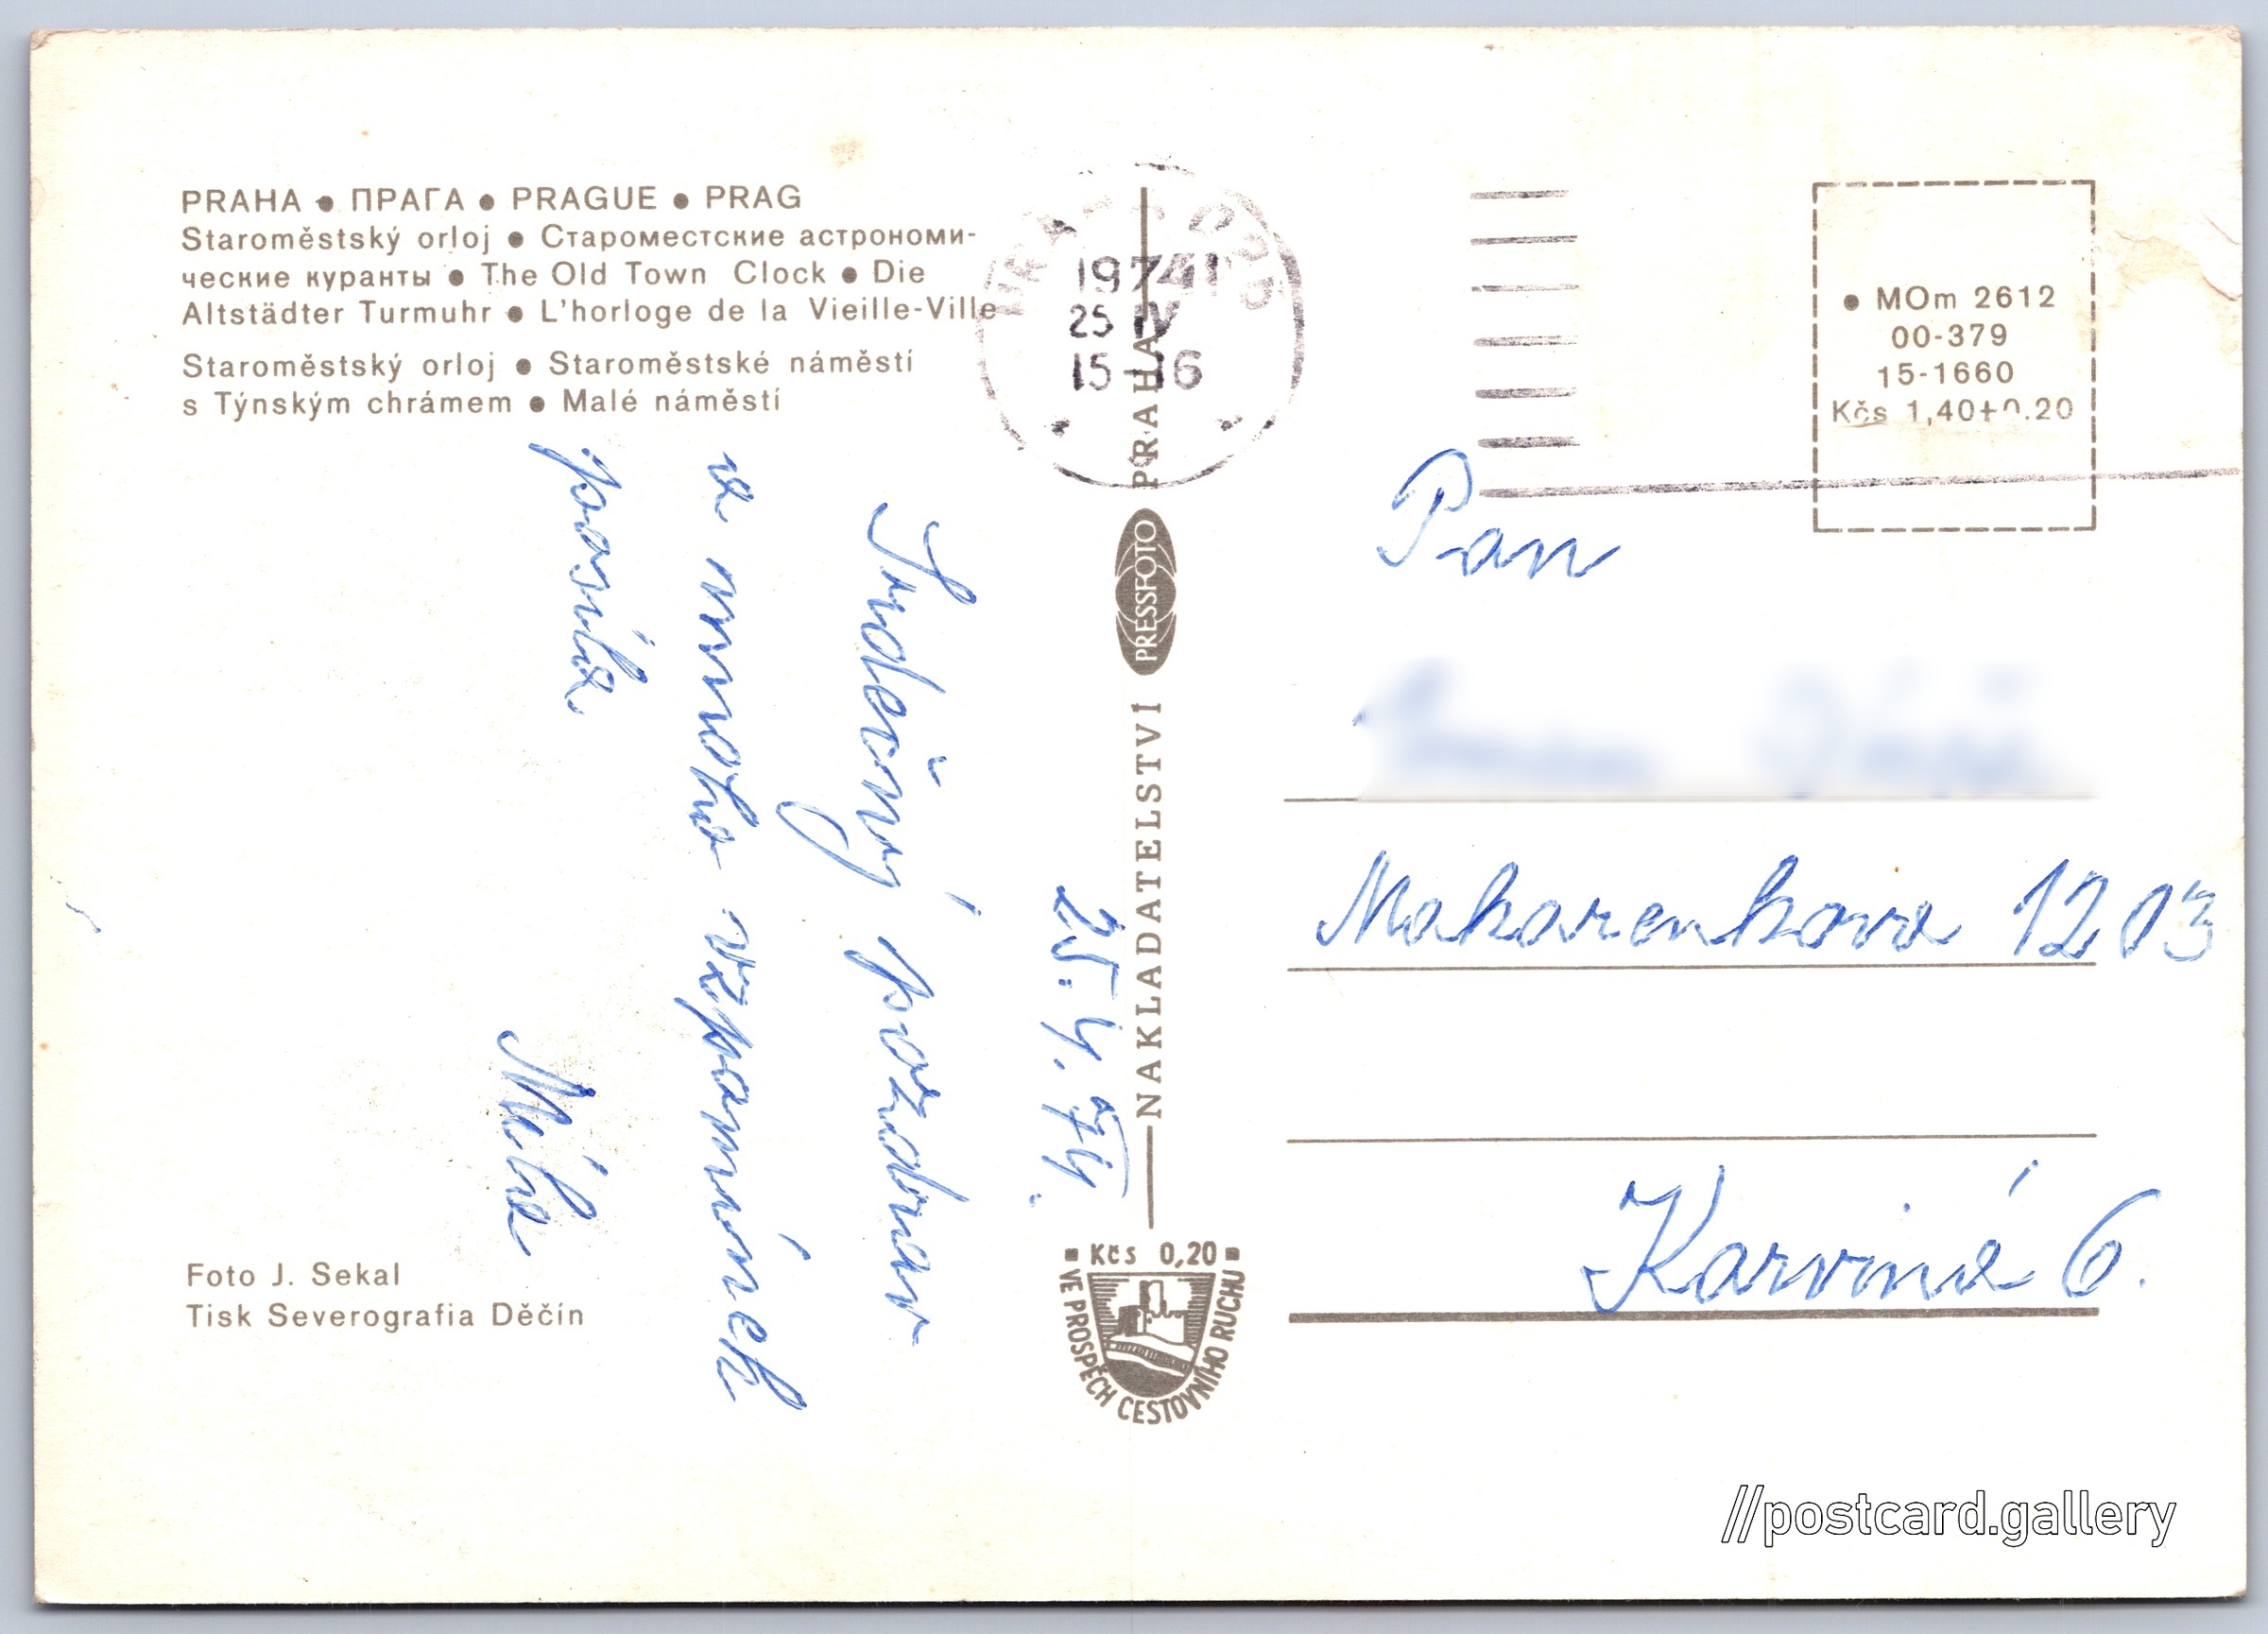 PRAHA ● ПРАГА ● PRAGUE ● PRAG
Staroměstský orloj ● Староместские астрономи-
ческие куранты ● The Old Town Clock ● Die
Altstädter Turmuhr ● L'horloge de la Vieille-Ville
Staroměstský orloj ● Staroměstské náměstí
s Týnským chrámem ● Malé náměstí
25. 4. 74.
Srdečný pozdrav
a mnoho vzpomínek
posílá
Míla
Foto J. Sekal
Tisk Severografia Děčín
1974
25 IV
15-16
NAKLADATELSTVÍ PRESSFOTO PRAHA
■ Kčs 0,20 ■
VE PROSPĚCH CESTOVNÍHO RUCHU
● MOm 2612
00-379
15-1660
Kčs 1,40+0.20
Pan
Makarenkova 1203
Karviná 6.
//postcard.gallery